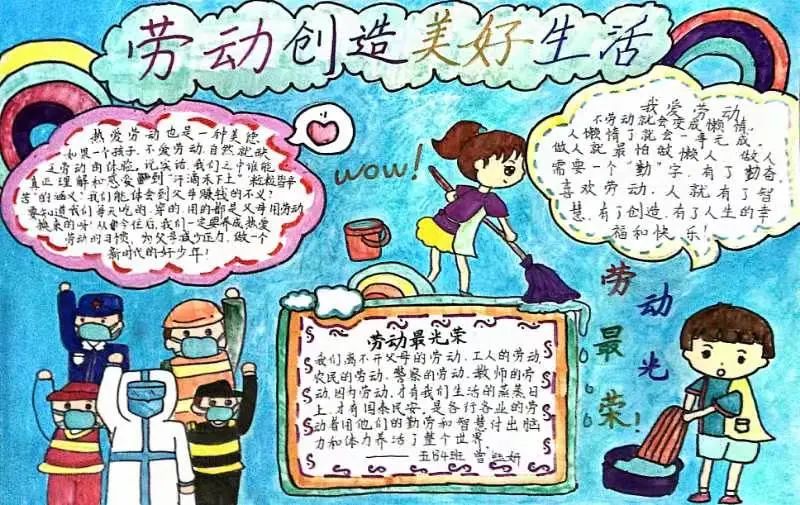 劳动创造美好生活
热爱劳动也是一种美德
如果一个孩子,不爱劳动,自然就缺
乏劳动的体验,说实话,我们之中谁能
真正理解和感受到"汗滴禾下土""粒粒皆辛
苦"的涵义?我们能体会到父母赚钱的不义?
要知道我们每天吃的,穿的,用的都是父母用劳动
换来的呀!从而今往后,我们一定要养成热爱
劳动的习惯,为父母减少压力,做一个
新时代的好少年!
wow!
我爱劳动
不劳动就会变成懒惰,
人懒惰了就会一事无成,
做人就最怕做懒人,做人
需要一个"勤"字,有了勤奋,
喜欢劳动,人就有了智
慧,有了创造,有了人生的幸
福和快乐!
劳动最光荣!
劳动最光荣
我们离不开父母的劳动、工人的劳动、
农民的劳动、警察的劳动、教师的劳
动,因为劳动,才有我们生活的蒸蒸日
上,才有国泰民安,是各行各业的劳
动者用他们的勤劳和智慧付出脑
力和体力养活了整个世界.
——五(4)班 曾